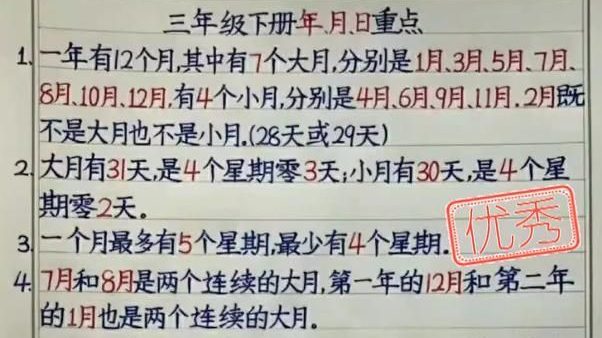 三年级下册年、月、日重点
1、一年有12个月,其中有7个大月,分别是1月、3月、5月、7月、
8月、10月、12月,有4个小月,分别是4月、6月、9月、11月.2月既
不是大月也不是小月.(28天或29天)
2、大月有31天,是4个星期零3天;小月有30天,是4个星
期零2天。
3、一个月最多有5个星期,最少有4个星期.
优秀
4、7月和8月是两个连续的大月,第一年的12月和第二年
的1月也是两个连续的大月。